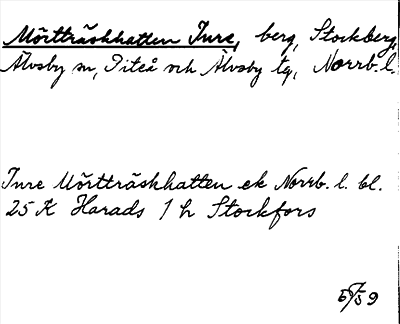 Mörtträskhatten Inre, berg, Stockberg,
Älvsby sn, Piteå och Älvsby tg, Norrb. l.
Inre Mörtträskhatten ek Norrb. l. bl.
25 K Harads 1 h Stockfors
5/5 59